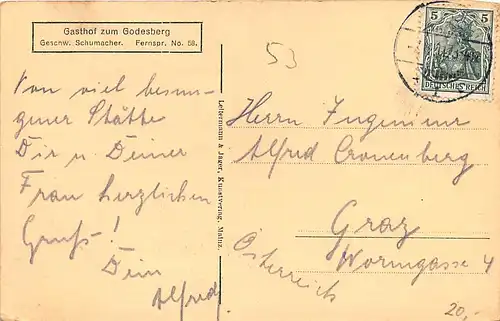 Gasthof zum Godesberg
Geschw. Schumacher. Fernspr. No. 58.
53
Von viel besun-
gener Stätte
Dir u. Deiner
Frau herzlichen
Gruß!
Dein
Alfred
Leitermann & Jäger, Kunstverlag, Mainz.
5 5
DEUTSCHES REICH
Herrn Ingenieur
Alfred Cronenberg
Graz
Wormgasse 4
Österreich
20,-